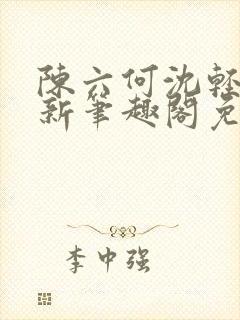 陳六何沈輕
新筆趣閣免
李中强